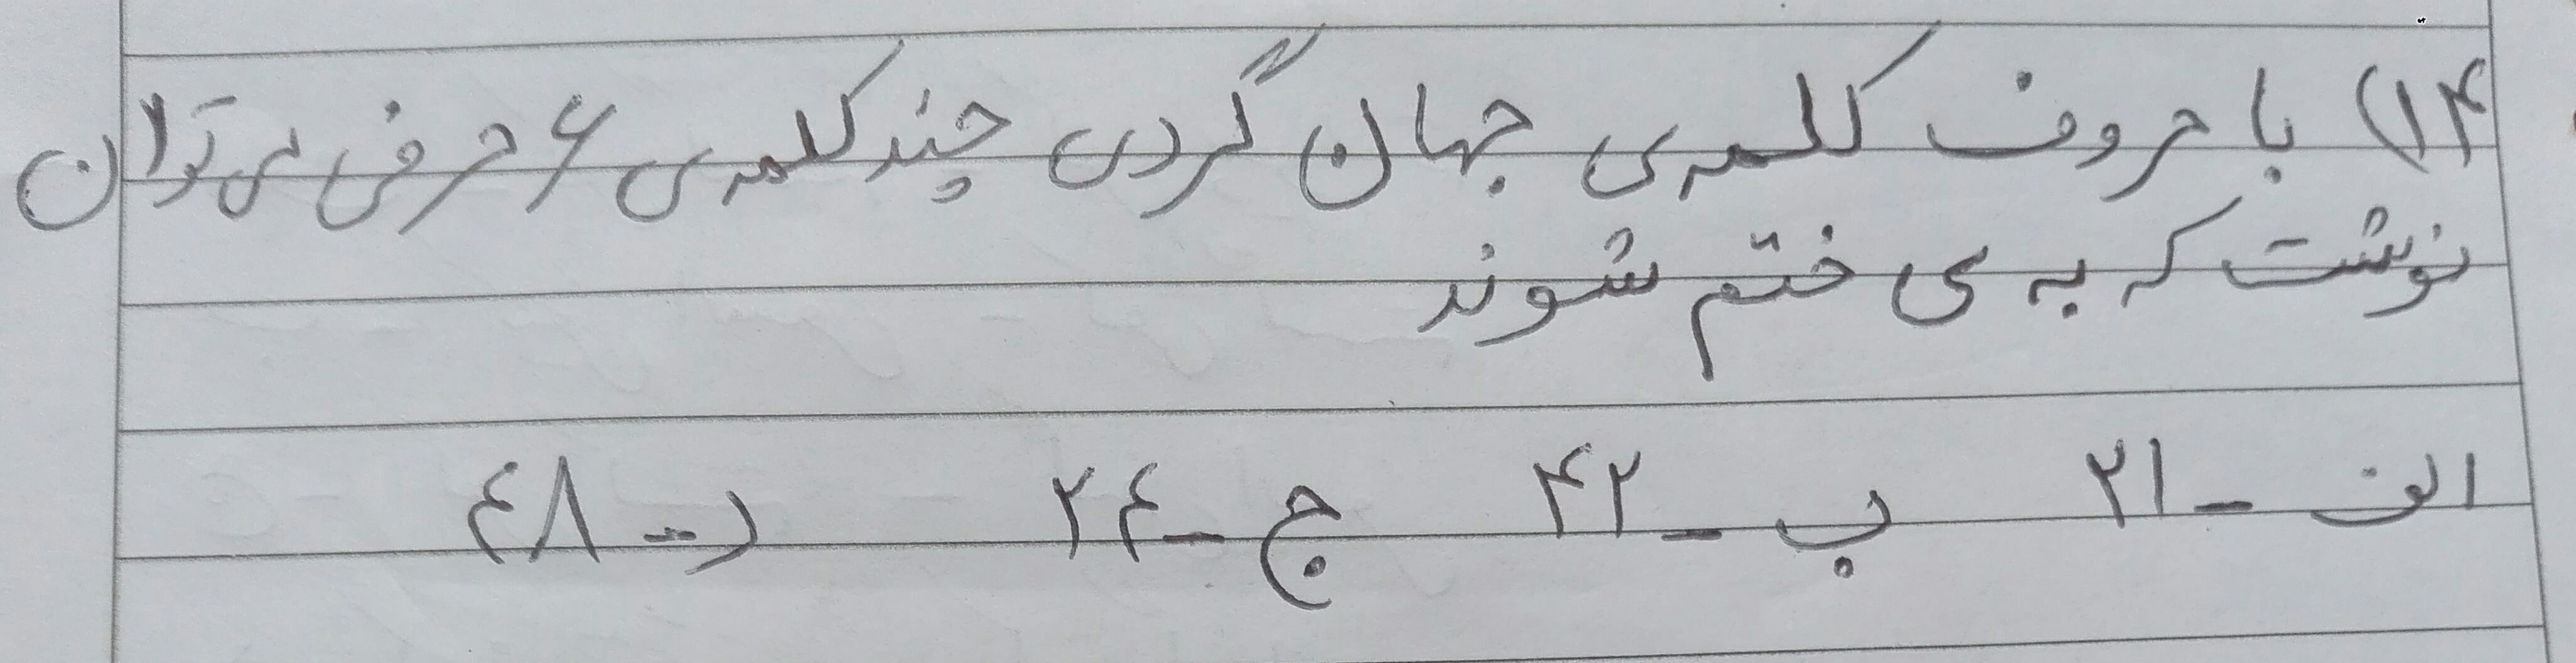 ۱۴) با حروف کلمه ی جهان گردی چند کلمه ی ۶ حرفی می توان
نوشت که به ی ختم شوند
الف - ۲۱ ب - ۴۲ ج - ۲۴ د - ۴۸